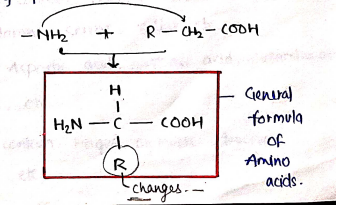 -NH₂ + R - CH₂ - COOH
H
H₂N - C - COOH
R
changes.-
General
formula
of
Amino
acids.